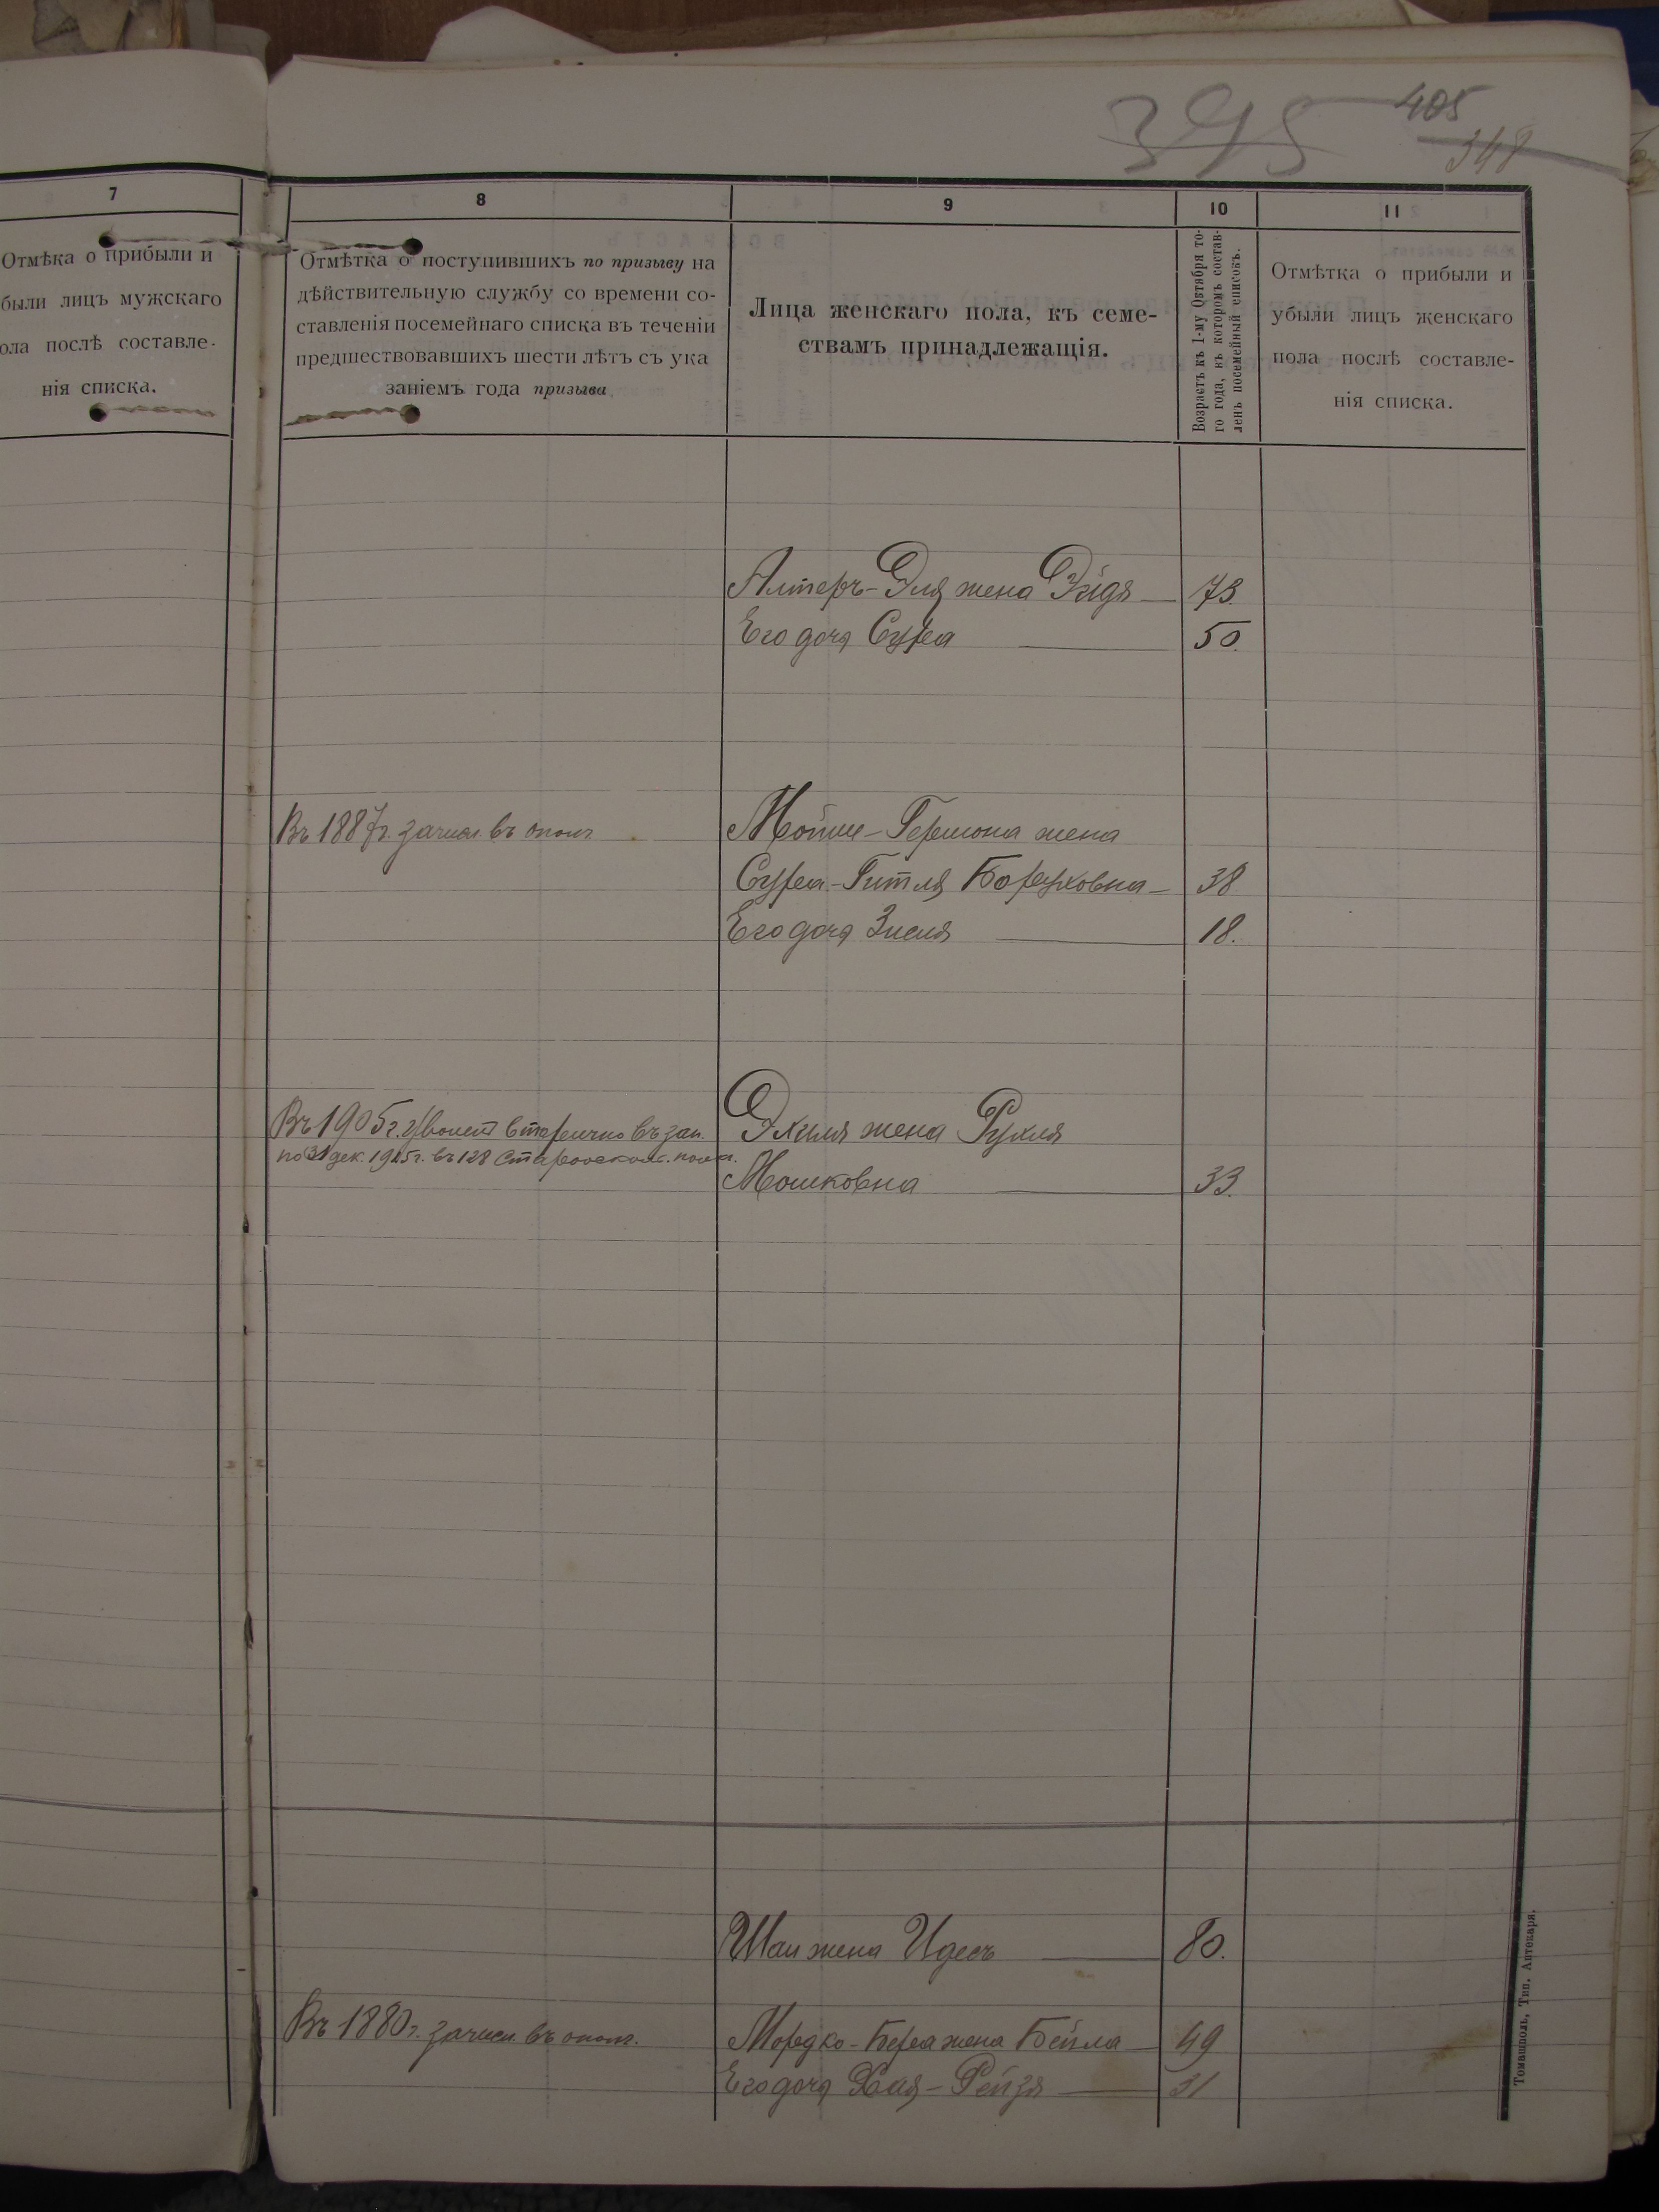 395 405
348
7
Отмѣка о прибыли и
были лицъ мужскаго
ола послѣ составле-
нія списка.
8
Отмѣтка о поступившихъ по призыву на
дѣйствительную службу со времени со-
ставленія посемейнаго списка въ теченіи
предшествовавшихъ шести лѣтъ съ ука
заніемъ года призыва
9
Лица женскаго пола, къ семе-
ствамъ принадлежащія.
10
Возрастъ къ 1-му Октября то-
го года, въ которомъ состав-
ленъ посемейный списокъ.
11
Отмѣтка о прибыли и
убыли лицъ женскаго
пола послѣ составле-
нія списка.
Алтеръ-Эля жена Эйдя 73.
Его дочя Сура 50.
Въ 1887г. зачисл. въ ополч. Мойше-Гершона жена
Сура-Гитля Боруховна 38
Его дочя Зисля 18.
Въ 1905г. уволен въ зап. Эхиля жена Рухля
по 31 дек. 1915г. въ 128 Старооскол. полк.
Мошковна 33.
Шаи жена Идесъ 80.
Въ 1880г. зачисл. въ ополч. Мордко-Бера жена Бейла 49
Его дочя Хая-Рейзя 31
Томашполь, Тип. Аптекаря.